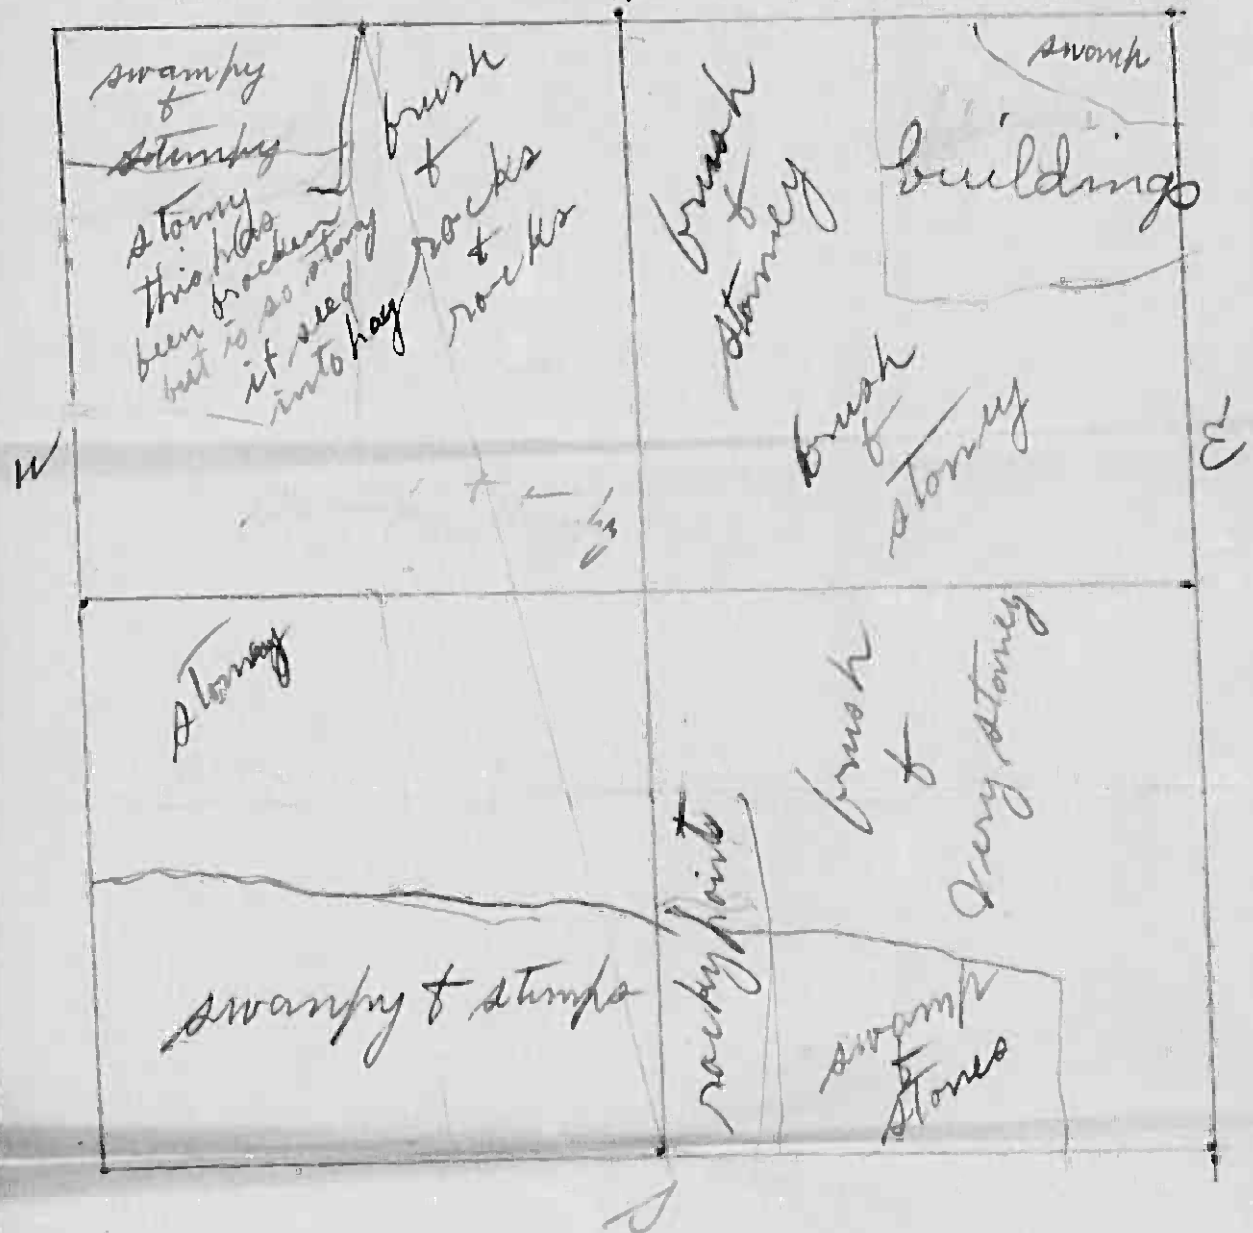 swampy
&
stumpy
stony
this has
been brocken
but is so stony
it seed
into hay
brush
&
rocks
&
rocks
brush
&
stoney
swamp
buildings
brush
&
stoney
W
E
stoney
brush
&
very stoney
rocky point
swampy & stumps
swamp
&
stones
S